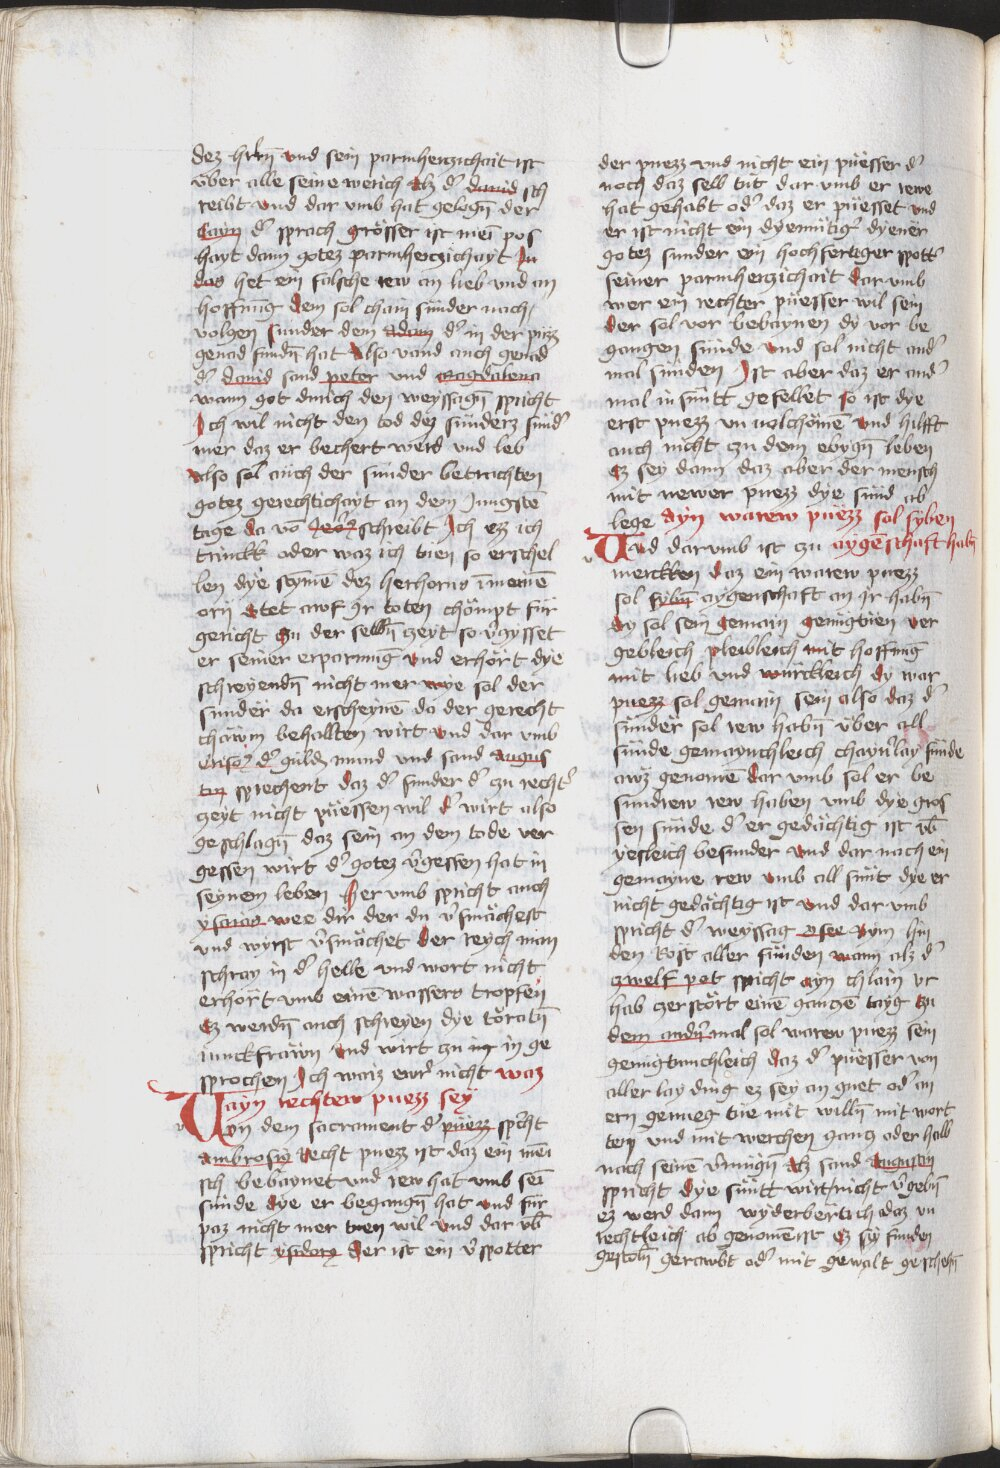 dez hrrn̄ vnd sein parmherczichait ist
über alle seine werich Alz dʼ dauid sch
reibt vnd dar vmb hat gelogn̄ der
Cayn dʼ sprach grösser ist mei͞ pos
hayt dann gotez parmherczichayt Ju
das het ein falsche rew an lieb vnd an
hoffnu͞g dem sol chain sünder nach
volgen sunder dem adam dʼ in der puzz
genad fundn̄ hat Also vand auch genad
dʼ dauid sand peter vnd magdalena
wann got durich den weyssagn̄ spricht
Ich wil nicht den tod dez sünderz sundʼ
mer daz er bechert werd vnd leb
Also sol auch der sunder betrachten
gotez gerechtichayt an dem Jungste͞
tage da vo͞ Jero͞ schreibt Ich ezz ich
trinckh oder waz ich tuen so erschel
len dye stym͞e dez herhorns in meine͞
orn̄ Stet awf ir toten chömpt für
gericht Zu der selbn̄ zeyt so vʼgysset
er seiner erparmu͞g vnd erhört dye
schreyendn̄ nicht mer wye sol der
sunder da erscheyne͞ da der gerecht
chawm behallten wirt vnd dar vmb
Crisoʼ dʼ guldn̄ mund vnd sand Augus
tin sprechent daz dʼ sunder dʼ zu rechtʼ
zeyt nicht püessen wil dʼ wirt also
geschlagn̄ daz sein an dem tode ver
gessen wirt dʼ gotez vʼgessen hat in
seynem leben Der vmb spricht auch
ysaias wee dir der du vʼsmächest
vnd wyrst vʼsmächet der reych man
schray in dʼ helle vnd wort nicht
erhört vmb eine͞ wassers tropfen
Ez werdn̄ auch schreyen dye töratn̄
iunckfrawn vnd wirt zu in ge
sprochen Ich waiz ewrʼ nicht waz
ayn rechtew puezz sey
Von dem sacrament dʼ püezz spʼcht
Ambrosiꝯ Recht puezz ist daz ein me͞
sch bebaynet vnd rew hat vmb sei͞
sunde dye er begangn̄ hat vnd für
paz nicht mer tuen wil vnd dar vb͞
spricht ysidorꝯ der ist ein vʼspotter
der puezz vnd nicht ein püesser dʼ
noch daz selb tut dar vmb er rewe
hat gehabt odʼ daz er püesset vnd
er ist nicht ein dyemütigʼ dyener
gotez sunder ein hochfertiger spottʼ
seiner parmherczichait dar vmb
wer ein rechter püesser wil sein
der sol vor bebaynen dy vor be
gangen sünde vnd sol nicht andʼ
mal sünden Ist aber daz er andʼ
mal in sunt gefellet so ist dye
erst puezz vn uolchöme͞ vnd hilfft
auch nicht zu dem ebygn̄ leben
Ez sey dann daz aber der mensch
mit newer puezz dye sünd ab
lege Ayn warew puezz sol syben
aygenschaft habn̄
Vnd dar vmb ist zu
merckken daz ein warew puezz
sol sybn̄ aygenschaft an ir habn̄
Sy sol sein gemain genügtuen ver
gebleich pleibleich mit hoffnu͞g
mit lieb vnd würckleich dy war
puezz sol gemain sein also daz dʼ
sünder sol rew habn̄ über all
sünde gemaynchleich chaynʼlay sünde
awz genome͞ dar vmb sol er be
sundrew rew haben vmb dye gros
sen sünde dʼ er gedächtig ist vb͞
yesleich besunder vnd dar nach ein
gemayne rew vmb all sünt dye er
nicht gedächtig ist vnd dar vmb
spricht dʼ weyssag Osee Nym hin
den Rost aller sünden wann alz dʼ
zwelf pot spricht Ayn chlain vr
hab zerstört eine͞ gancze͞ tayg Zu
dem andʼn mal sol warew puezz sein
genugtunchleich daz dʼ püesser von
aller lay ding ez sey an guet odʼ an
ern genueg tue mit willn̄ mit wort
ten vnd mit werchen gancz oder halb
nach seine͞ vʼmugn̄ Alz sand Augustin
spricht dye süntt wirt nicht vʼgebn̄
ez werd dann wyderbertich daz vn
rechtleich ab genomen ist Ez sey funden
gestoln̄ gerawbt odʼ mit gewalt geschehn̄